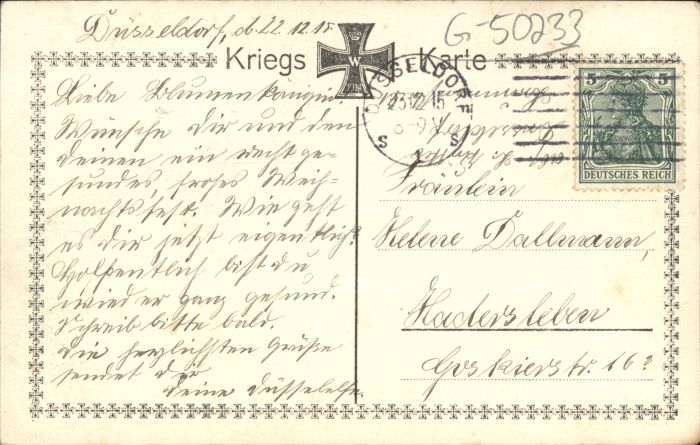 Düsseldorf, d. 22.12.15
G-50233
Kriegs Karte
W
1914
DÜSSELDORF
23.12.15
8-9V
S S
5 5
DEUTSCHES REICH
Liebe Blumenkönigin
Wünsche dir und den
deinen ein recht ge-
sundes, frohes Weih-
nachtsfest. Wie geht
es dir jetzt eigentlich?
Hoffentlich bist du
wieder ganz gesund.
Schreib bitte bald.
Die herzlichsten Grüße
sendet dir
deine Düsselelfe.
Fräulein
Helene Dallmann,
Hadersleben
Goskierstr. 16